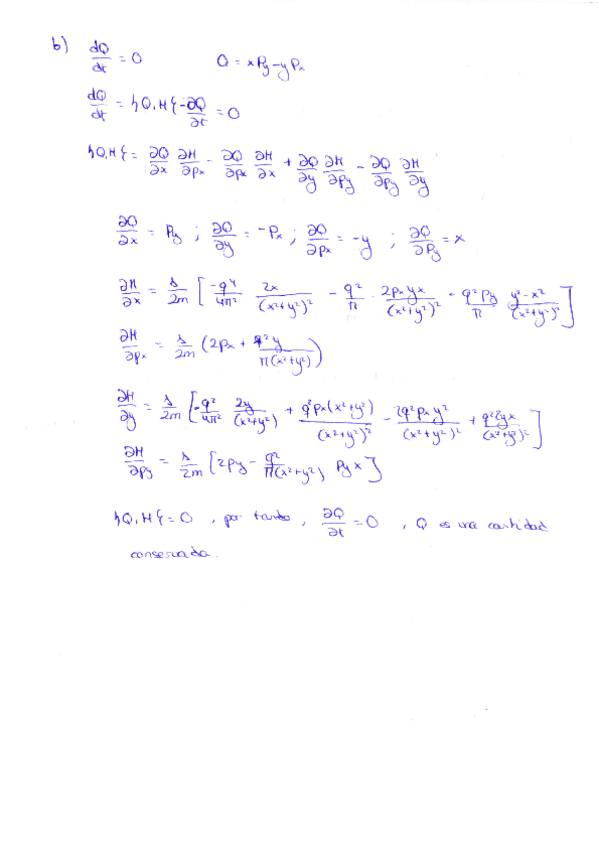 b) dQ/dt = 0    Q = xPy - yPx
dQ/dt = {Q,H} - ∂Q/∂t = 0
{Q,H} = ∂Q/∂x ∂H/∂px - ∂Q/∂px ∂H/∂x + ∂Q/∂y ∂H/∂py - ∂Q/∂py ∂H/∂y
∂Q/∂x = Py ; ∂Q/∂y = -Px ; ∂Q/∂px = -y ; ∂Q/∂Py = x
∂H/∂x = 1/2m [ -q⁴/4π² 2x/(x²+y²)² - q²/π · 2pxyx/(x²+y²)² - q²Py/π y²-x²/(x²+y²)² ]
∂H/∂px = 1/2m (2px + q²y/π(x²+y²))
∂H/∂y = 1/2m [ -q²/4π² 2y/(x²+y²) + q²px(x²+y²)/(x²+y²)² - 2q²pxy²/(x²+y²)² + q²2yx/(x²+y²)² ]
∂H/∂py = 1/2m [2py - q²/π(x²+y²) Pyx]
{Q,H} = 0 , por tanto , ∂Q/∂t = 0 , Q es una cantidad
conservada.